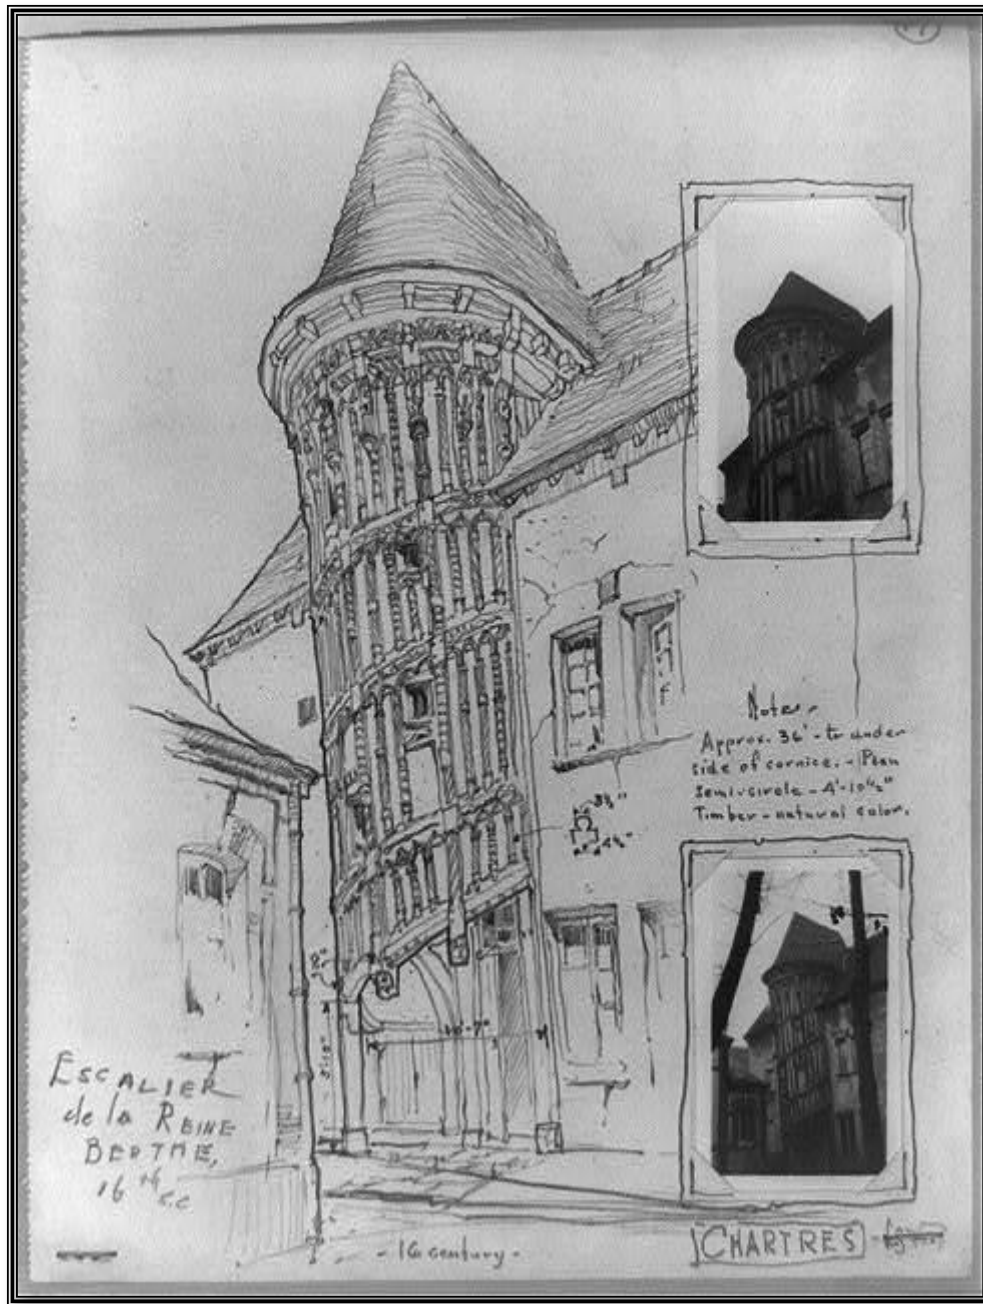 Note -
Approx. 36' - to under
side of cornice. - Plan
semi-circle - 4'-10½"
Timber - natural color.
3½"
4½"
10'-7"
ESCALIER
de la REINE
BERTHE,
16th c.c
- 16 century -
CHARTRES